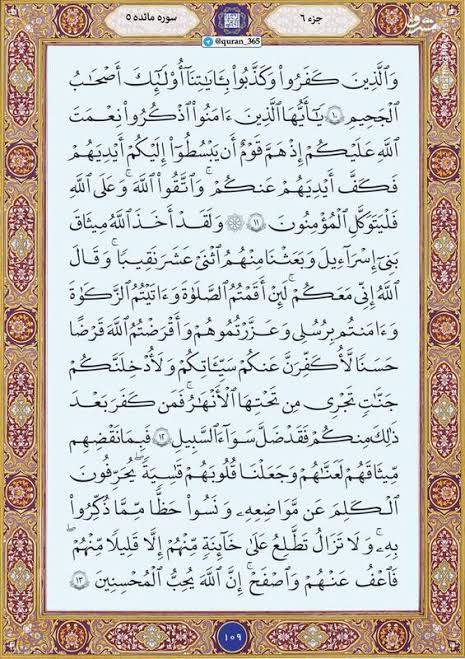 جزء ۶
سوره مائده ۵
@quran_365
وَٱلَّذِينَ كَفَرُواْ وَكَذَّبُواْ بِـَٔايَٰتِنَآ أُوْلَٰٓئِكَ أَصۡحَٰبُ
ٱلۡجَحِيمِ ۱۰ يَٰٓأَيُّهَا ٱلَّذِينَ ءَامَنُواْ ٱذۡكُرُواْ نِعۡمَتَ
ٱللَّهِ عَلَيۡكُمۡ إِذۡ هَمَّ قَوۡمٌ أَن يَبۡسُطُوٓاْ إِلَيۡكُمۡ أَيۡدِيَهُمۡ
فَكَفَّ أَيۡدِيَهُمۡ عَنكُمۡۖ وَٱتَّقُواْ ٱللَّهَۚ وَعَلَى ٱللَّهِ
فَلۡيَتَوَكَّلِ ٱلۡمُؤۡمِنُونَ ۱۱ ۞ وَلَقَدۡ أَخَذَ ٱللَّهُ مِيثَٰقَ
بَنِيٓ إِسۡرَٰٓءِيلَ وَبَعَثۡنَا مِنۡهُمُ ٱثۡنَيۡ عَشَرَ نَقِيبٗاۖ وَقَالَ
ٱللَّهُ إِنِّي مَعَكُمۡۖ لَئِنۡ أَقَمۡتُمُ ٱلصَّلَوٰةَ وَءَاتَيۡتُمُ ٱلزَّكَوٰةَ
وَءَامَنتُم بِرُسُلِي وَعَزَّرۡتُمُوهُمۡ وَأَقۡرَضۡتُمُ ٱللَّهَ قَرۡضًا
حَسَنٗا لَّأُكَفِّرَنَّ عَنكُمۡ سَيِّـَٔاتِكُمۡ وَلَأُدۡخِلَنَّكُمۡ
جَنَّٰتٖ تَجۡرِي مِن تَحۡتِهَا ٱلۡأَنۡهَٰرُۚ فَمَن كَفَرَ بَعۡدَ
ذَٰلِكَ مِنكُمۡ فَقَدۡ ضَلَّ سَوَآءَ ٱلسَّبِيلِ ۱۲ فَبِمَا نَقۡضِهِم
مِّيثَٰقَهُمۡ لَعَنَّٰهُمۡ وَجَعَلۡنَا قُلُوبَهُمۡ قَٰسِيَةٗۖ يُحَرِّفُونَ
ٱلۡكَلِمَ عَن مَّوَاضِعِهِۦ وَنَسُواْ حَظّٗا مِّمَّا ذُكِّرُواْ
بِهِۦۚ وَلَا تَزَالُ تَطَّلِعُ عَلَىٰ خَآئِنَةٖ مِّنۡهُمۡ إِلَّا قَلِيلٗا مِّنۡهُمۡۖ
فَٱعۡفُ عَنۡهُمۡ وَٱصۡفَحۡۚ إِنَّ ٱللَّهَ يُحِبُّ ٱلۡمُحۡسِنِينَ ۱۳
۱۰۹